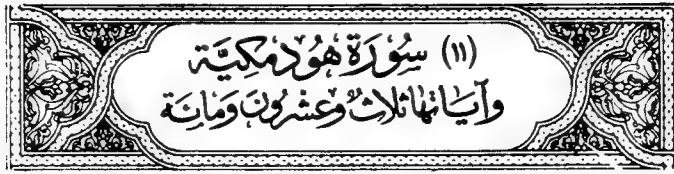 (١١) سُورَة هُود مَكِيَّة
وَآيَاتها ثلاثٌ وَعشرُونَ وَمائة